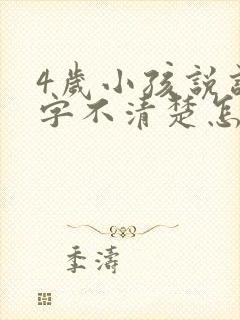 4歲小孩說
字不清楚怎
季濤